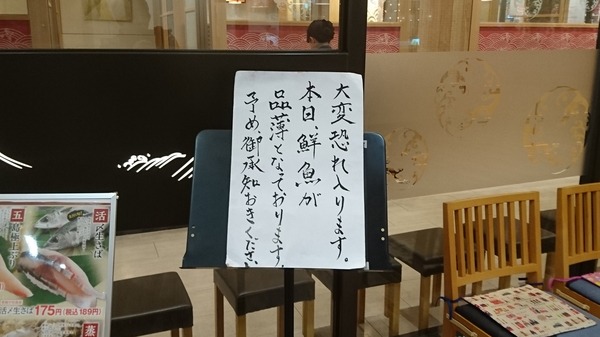 大変恐れ入ります。
本日、鮮魚が
品薄となております。
予め、御承知おきください
活〆生さば
五
活〆生さば175円(税込189円)
蒸